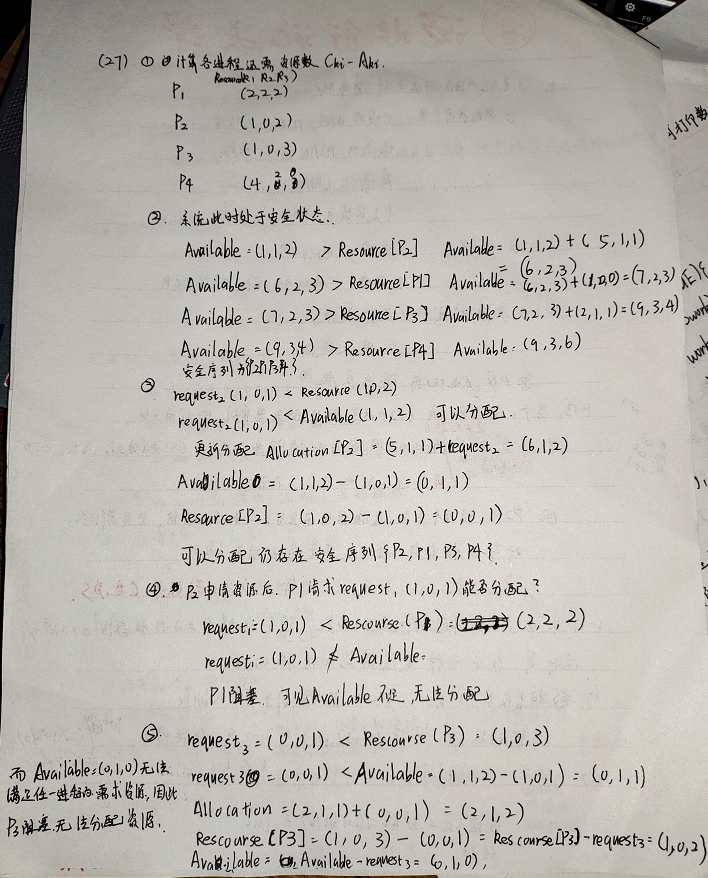 (27) ① 计算各进程还需资源数 Cki-Aki.
Resource(R1 R2 R3)
P1 (2,2,2)
P2 (1,0,2)
P3 (1,0,3)
P4 (4,2,0)
②. 系统此时处于安全状态.
Available=(1,1,2) > Resource[P2] Available= (1,1,2)+(5,1,1)
= (6,2,3)
Available=(6,2,3) > Resource[P1] Available= (6,2,3)+(1,0,0)=(7,2,3)
Available=(7,2,3) > Resource[P3] Available=(7,2,3)+(2,1,1)=(9,3,4)
Available=(9,3,4) > Resource[P4] Available=(9,3,6)
安全序列为{P2P1P3P4}.
③ request2(1,0,1) < Resource(1,0,2)
request2(1,0,1) < Available(1,1,2) 可以分配.
更新分配 Allocation[P2]=(5,1,1)+request2=(6,1,2)
Available = (1,1,2)-(1,0,1)=(0,1,1)
Resource[P2]= (1,0,2)-(1,0,1)=(0,0,1)
可以分配 仍存在安全序列{P2,P1,P3,P4}.
④. P2申请资源后. P1请求request1(1,0,1)能否分配?
request1=(1,0,1) < Rescourse(P1)= (2,2,2)
request1=(1,0,1) ≮ Available.
P1阻塞. 可见Available不足,无法分配
⑤. request3=(0,0,1) < Rescourse(P3)=(1,0,3)
request3=(0,0,1) < Available=(1,1,2)-(1,0,1)=(0,1,1)
Allocation=(2,1,1)+(0,0,1)=(2,1,2)
Rescourse[P3]=(1,0,3)-(0,0,1)=Rescourse[P3]-request3=(1,0,2)
Available= Available-request3=(0,1,0),
而Available=(0,1,0)无法
满足任一进程的需求资源,因此
P3阻塞.无法分配资源.